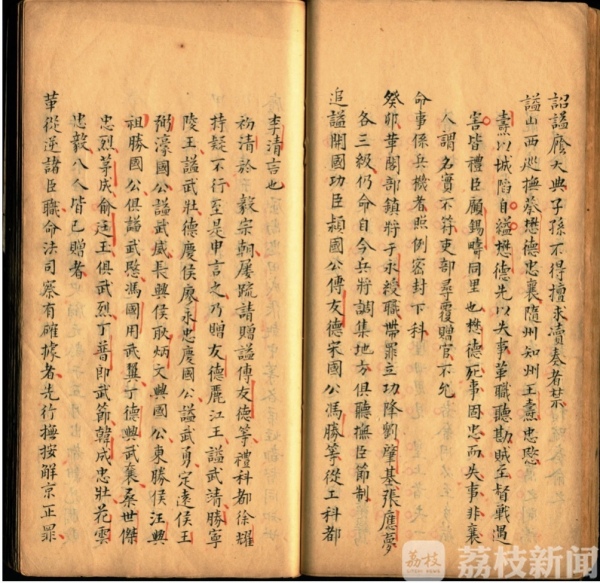 詔謚廕大典子孫不得擅求瀆奏者禁
謚山西巡撫蔡懋德忠襄隨州知州王燾忠愍
燾以城陷自縊懋德先以失事革職聽勘賊至督戰遇
害皆禮臣顧錫疇同里也懋德死事固忠而失事非襄
人謂名實不符吏部尋覆贈官不允
命事係兵機者照例密封下科
癸卯革閣部鎮將于永綬職帶罪立功降劉肇基張應夢
各三級仍命自今兵將調集地方俱聽撫臣節制
追謚開國功臣潁國公傅友德宋國公馮勝等從工科都
李清言也
初清於 毅宗朝屢疏請贈謚傅友德等禮科都徐耀
持疑不行至是申言之乃贈友德麗江王謚武清勝寧
陵王謚武壯德慶侯廖永忠慶國公謚武勇定遠侯王
弼濠國公謚武威長興侯耿炳文興國公東勝侯汪興
祖勝國公俱謚武愍馮國用武翼丁德興武襄桑世傑
忠烈茅成俞廷玉俱武烈丁普郎武節韓成忠壯花雲
忠毅八人皆已贈者
革從逆諸臣職命法司察有確據者先行撫按解京正罪
荔枝
荔枝新闻